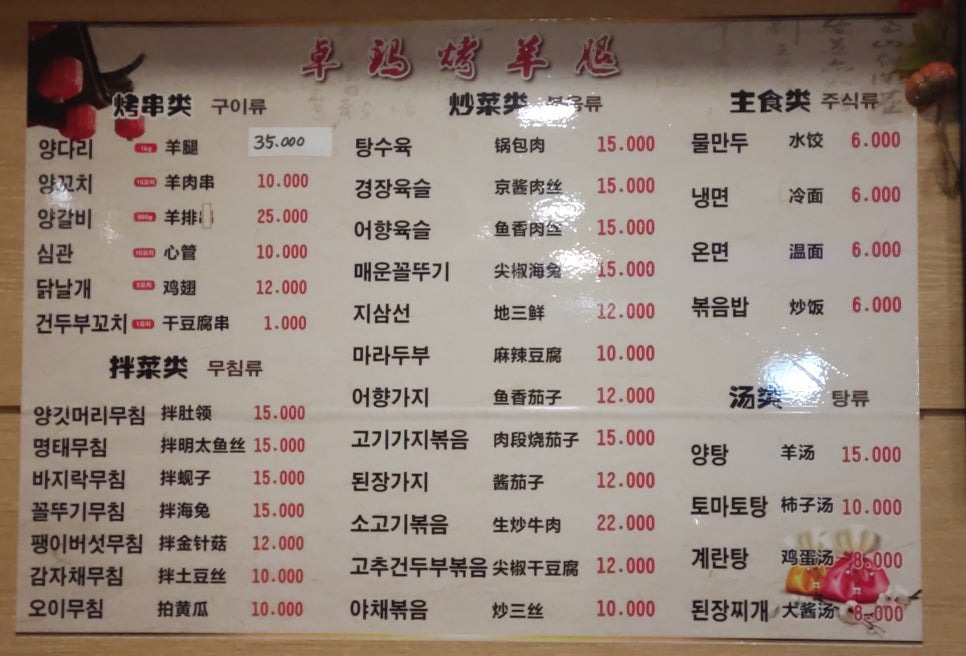 卓玛烤羊腿
烤串类 구이류
양다리 1kg 羊腿 35.000
양꼬치 10꼬치 羊肉串 10.000
양갈비 800g 羊排 25.000
심관 10꼬치 心管 10.000
닭날개 鸡翅 12.000
건두부꼬치 1꼬치 干豆腐串 1.000
拌菜类 무침류
양깃머리무침 拌肚领 15.000
명태무침 拌明太鱼丝 15.000
바지락무침 拌蚬子 15.000
꼴뚜기무침 拌海兔 15.000
팽이버섯무침 拌金针菇 12.000
감자채무침 拌土豆丝 10.000
오이무침 拍黄瓜 10.000
炒菜类 볶음류
탕수육 锅包肉 15.000
경장육슬 京酱肉丝 15.000
어향육슬 鱼香肉丝 15.000
매운꼴뚜기 尖椒海兔 15.000
지삼선 地三鲜 12.000
마라두부 麻辣豆腐 10.000
어향가지 鱼香茄子 12.000
고기가지볶음 肉段烧茄子 15.000
된장가지 酱茄子 12.000
소고기볶음 生炒牛肉 22.000
고추건두부볶음 尖椒干豆腐 12.000
야채볶음 炒三丝 10.000
主食类 주식류
물만두 水饺 6.000
냉면 冷面 6.000
온면 温面 6.000
볶음밥 炒饭 6.000
汤类 탕류
양탕 羊汤 15.000
토마토탕 柿子汤 10.000
계란탕 鸡蛋汤 8.000
된장찌개 大酱汤 8.000